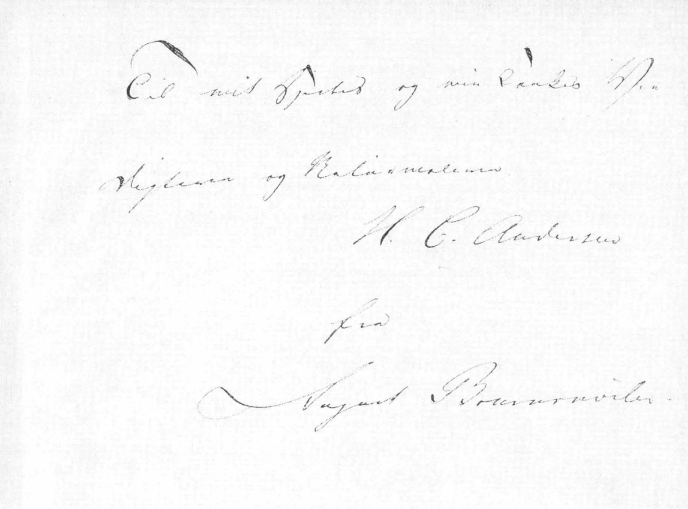 Til mit Hjertes og min Tankes Ven
Digteren og Naturmaleren
H. C. Andersen
fra
August Bournonville.